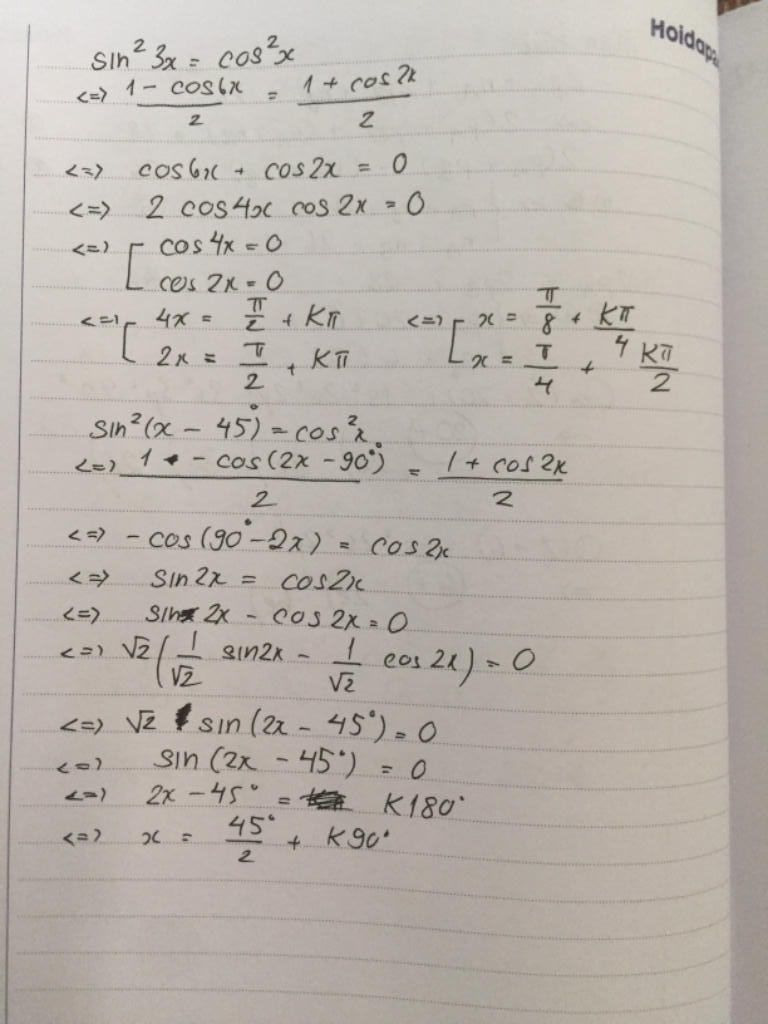 Hoidapa
sin²3x = cos²x
<=> (1 - cos6x)/2 = (1 + cos2x)/2
<=> cos6x + cos2x = 0
<=> 2 cos4x cos2x = 0
<=> [ cos4x = 0
cos2x = 0
<=> [ 4x = π/2 + Kπ <=> [ x = π/8 + Kπ/4
2x = π/2 + Kπ x = π/4 + Kπ/2
sin²(x - 45°) = cos²x
<=> (1 - cos(2x - 90°))/2 = (1 + cos2x)/2
<=> -cos(90° - 2x) = cos2x
<=> sin2x = cos2x
<=> sin2x - cos2x = 0
<=> √2(1/√2 sin2x - 1/√2 cos2x) = 0
<=> √2 sin(2x - 45°) = 0
<=> sin(2x - 45°) = 0
<=> 2x - 45° = K180°
<=> x = 45°/2 + K90°